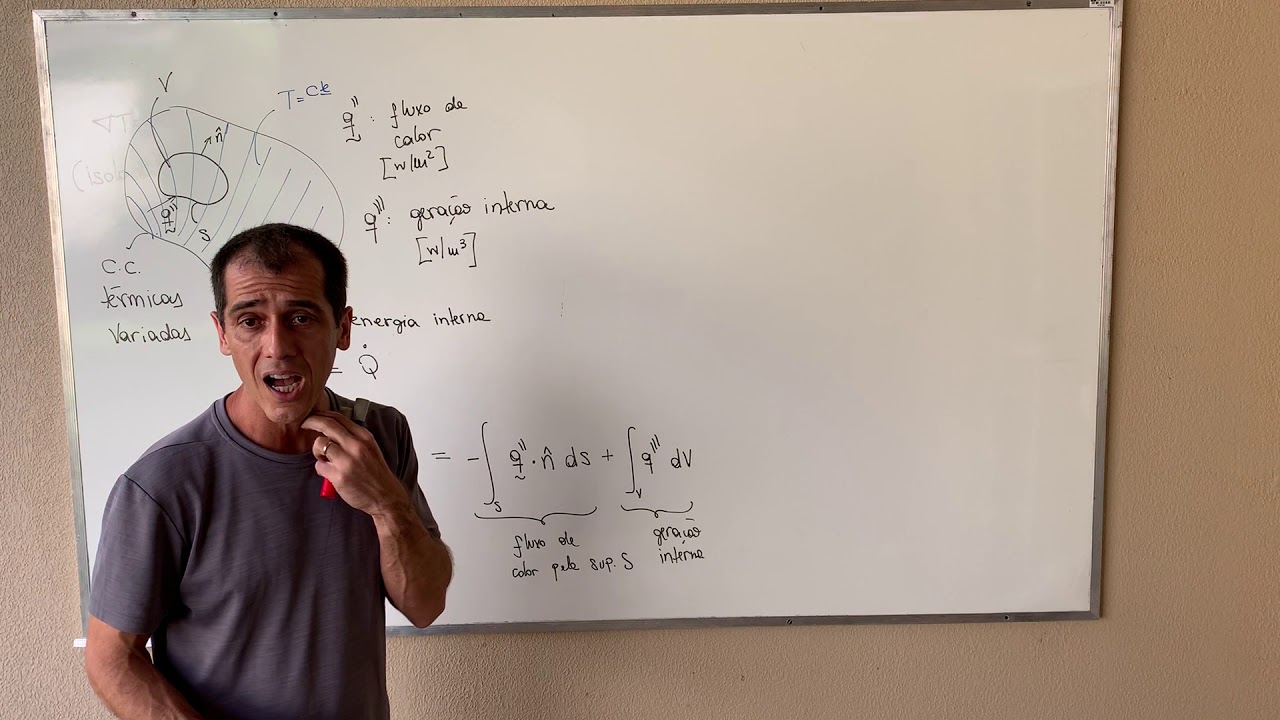 V
T = cte
n̂
q''
S
C.C.
térmicas
variadas
q'' : fluxo de
calor
[W/m²]
q''' : geração interna
[W/m³]
energia interna
= Q̇
= -∫_S q'' · n̂ dS + ∫_V q''' dV
fluxo de
calor pela sup. S
geração
interna
∇T
(isola